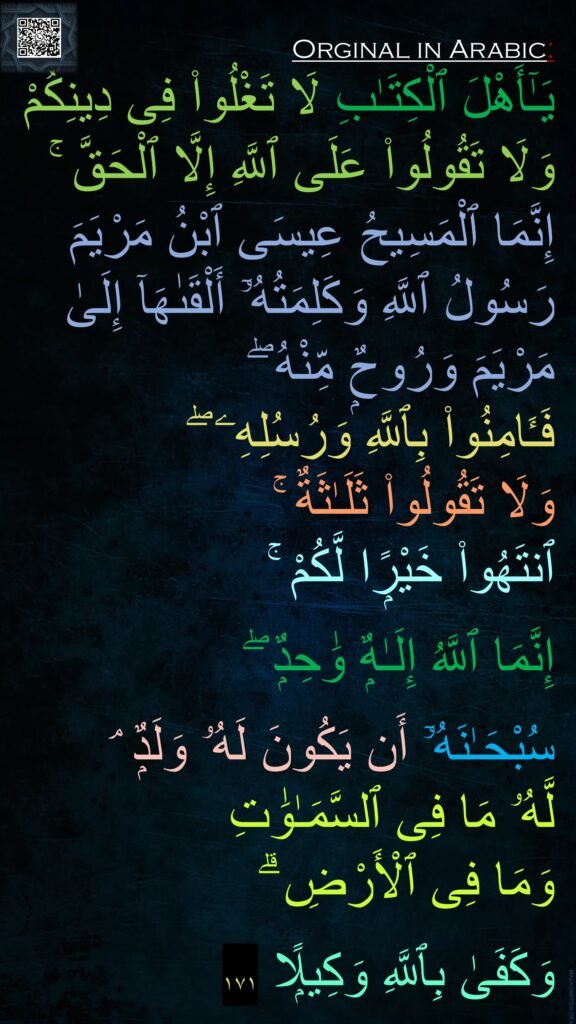 ORGINAL IN ARABIC:
يَـٰٓأَهْلَ ٱلْكِتَـٰبِ لَا تَغْلُوا۟ فِى دِينِكُمْ
وَلَا تَقُولُوا۟ عَلَى ٱللَّهِ إِلَّا ٱلْحَقَّ ۚ
إِنَّمَا ٱلْمَسِيحُ عِيسَى ٱبْنُ مَرْيَمَ
رَسُولُ ٱللَّهِ وَكَلِمَتُهُۥٓ أَلْقَىٰهَآ إِلَىٰ
مَرْيَمَ وَرُوحٌۭ مِّنْهُ ۖ
فَـَٔامِنُوا۟ بِٱللَّهِ وَرُسُلِهِۦ ۖ
وَلَا تَقُولُوا۟ ثَلَـٰثَةٌ ۚ
ٱنتَهُوا۟ خَيْرًۭا لَّكُمْ ۚ
إِنَّمَا ٱللَّهُ إِلَـٰهٌۭ وَٰحِدٌۭ ۖ
سُبْحَـٰنَهُۥٓ أَن يَكُونَ لَهُۥ وَلَدٌۭ ۘ
لَّهُۥ مَا فِى ٱلسَّمَـٰوَٰتِ
وَمَا فِى ٱلْأَرْضِ ۗ
وَكَفَىٰ بِٱللَّهِ وَكِيلًۭا ١٧١